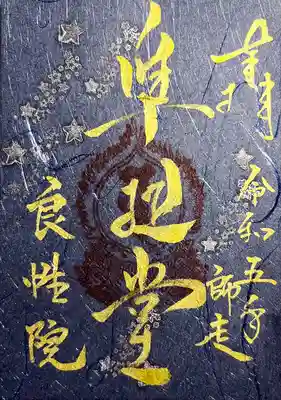 奉拝
令和五年
師走
准胝堂
良性院